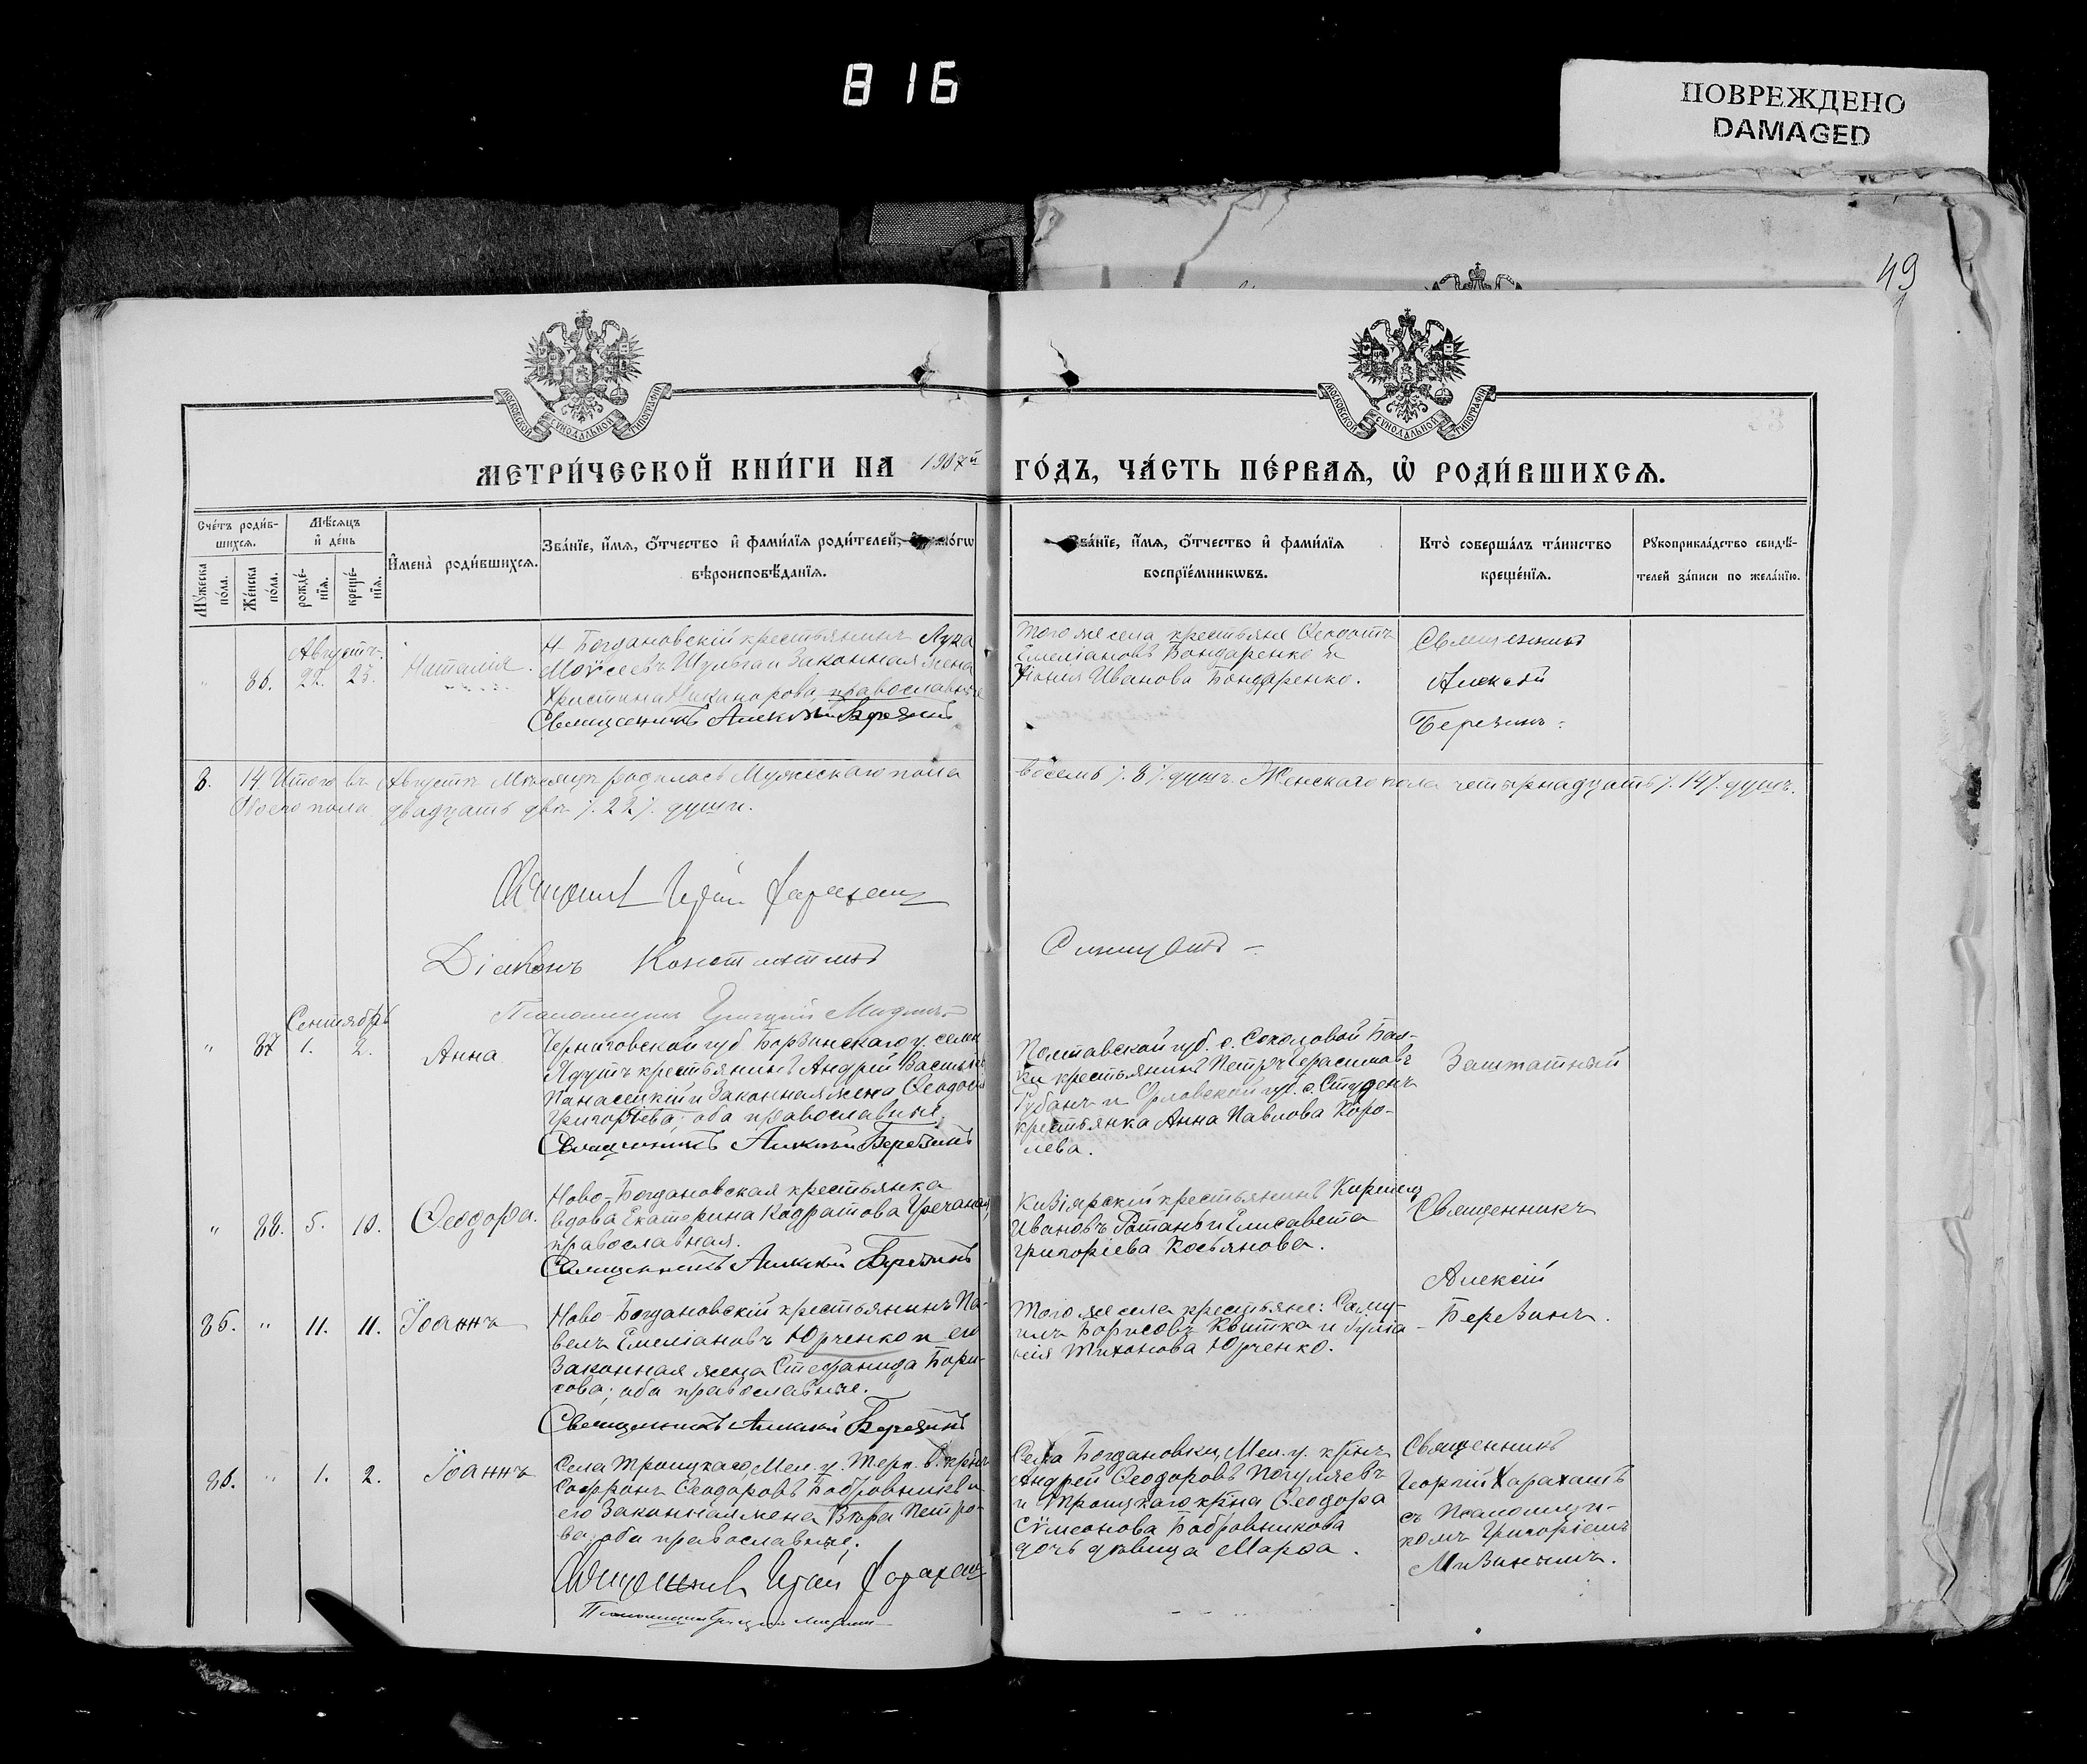 816
ПОВРЕЖДЕНО
DAMAGED
49
МОСКОВСКОЙ СѴНОДАЛЬНОЙ ТИПОГРАФІИ
МОСКОВСКОЙ СѴНОДАЛЬНОЙ ТИПОГРАФІИ
МЕТРИ́ЧЕСКОЙ КНИ́ГИ НА 1907й ГО́ДЪ, ЧА́СТЬ ПЕ́РВАЯ, Ѡ РОДИ́ВШИХСЯ.
Сче́тъ роди́вшихся.
Му́жеска по́ла.
Же́нска по́ла.
Мѣ́сяцъ и де́нь
рожде́нїя.
креще́нїя.
Имена̀ роди́вшихся.
Зва́нїе, и́мя, о́тчество и фами́лїя роди́телей,
вѣроисповѣ́данїя.
Зва́нїе, и́мя, о́тчество и фами́лїя
воспрїе́мникѡвъ.
Кто̀ соверша́лъ та́инство
креще́нїя.
Рукоприкла́дство свидѣ́-
телей за́писи по жела́нїю.
Августъ.
" 86. 22. 23. Наталія.
Н-Богдановскій крестьянинъ Лука
Моѵсеевъ Шульга и законная жена
Христина Никанорова православные
Священникъ Алексій Березинъ
того же села крестьяне Ѳеодотъ
Емеліановъ Бондаренко и
Иванова Бондаренко.
Священникъ
Алексій
Березинъ.
8. 14. Итого въ Августѣ мѣсяцѣ родилось мужескаго пола восемь /.8/. душъ. Женскаго пола четырнадцать /.14/. душъ.
Обоего пола двадцать двѣ /.22/. души.
Священникъ Харахашъ
Діаконъ Константинъ
Псаломщикъ Григорій
Сентябрь
" 87 1. 2. Анна
Черниговской губ Борзинскаго у. села
крестьянинъ Андрей Васильевъ
Панасецкій и законная жена Ѳеодосія
Григорьева; оба православные.
Священникъ Алексій Березинъ
Полтавской губ. с. Соколовой Бал-
ки крестьянинъ Петръ Герасимовъ
Губанъ и Орловской губ. с.
крестьянка Анна Павлова Коро-
лева.
Заштатный
" 88. 5. 10. Ѳеодора.
Ново-Богдановская крестьянка
вдова Екатерина Кодратова Гречаная,
православная.
Священникъ Алексій Березинъ
Кизіярскій крестьянинъ Кирилъ
Ивановъ Ротань и Елисавета
Григоріева Косьянова.
Священникъ
Алексій
Березинъ.
85. " 11. 11. Іоаннъ
Ново-Богдановскій крестьянинъ Па-
велъ Емеліановъ Юрченко и его
законная жена Стефанида Бори-
сова; оба православные.
Священникъ Алексій Березинъ
того же села крестьяне: Саму-
илъ Борисовъ Квитка и Іуліа-
нія Тихонова Юрченко.
86. " 1. 2. Іоаннъ
Села Троицкаго, Мел. у. Тер.
Софронъ Ѳеодоровъ Бобровниковъ и
его законная жена Вѣра Петро-
ва; оба православные.
Священникъ Харахашъ
Псаломщикъ Григорій
Села Богдановки, Мел. у. кр-нъ
Андрей Ѳеодоровъ Погуляевъ
и Троицкаго кр-на Ѳеодора
Сѵмеонова Бобровникова
дочь дѣвица Марѳа.
Священникъ
Георгій Харахашъ
съ Псаломщи-
комъ Григоріемъ